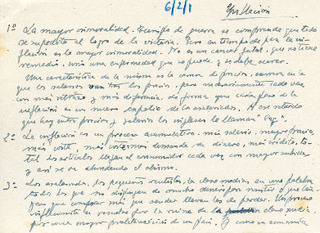 6/2/1 Inflación
1º La mayor inmoralidad. Tiempo de guerra se comprende que todo
se supedite al logro de la victoria. Pero en tiempo de paz la in-
flación es la mayor inmoralidad. No es un carácter fatal, que no tiene
remedio: sino una enfermedad que se puede y se debe curar.
Una característica de la misma es la carrera de precios, carrera en la
que los salarios van tras los precios, pero exclusivamente cada vez
con más retraso y más distancia, de forma que cada paso de la
inflación es un nuevo expolio de los asalariados. A ese retardo
que hay entre precios y salarios los ingleses le llaman "Gap".
2º La inflación es un proceso acumulativo: más salario, mayor precio,
más coste, más intensa demanda de dinero, más crédito, to-
tal los artículos llegan al consumidor cada vez con mayor
y así se va ahondando el abismo.
3º Los asalariados, los pequeños rentistas, la clase media, en una palabra
todos los que no disfrutan de renta
gan que comprar más que vender llevan las de perder. Un proceso
inflacionista se resuelve por la ruina de la clase media,
por una mayor proletarización de un país. Y como la